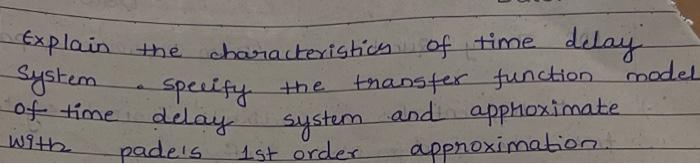 Explain the characteristics of time delay
System. specify the transfer function model
of time delay system and approximate
with pade's 1st order approximation.